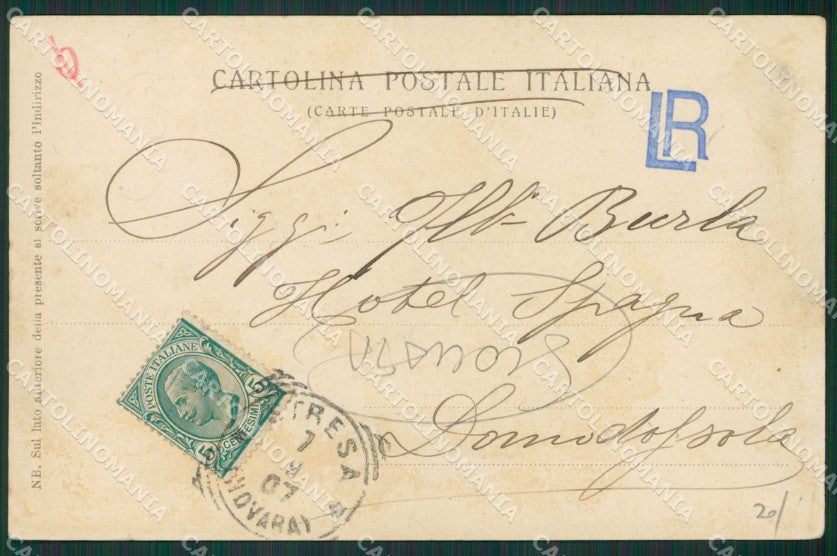 CARTOLINA POSTALE ITALIANA
(CARTE POSTALE D'ITALIE)
LR
NB. Sul lato anteriore della presente si scrive soltanto l'indirizzo
Burla
Hotel Spagna
Domodossola
POSTE ITALIANE
5 CENTESIMI 5
STRESA
7
07
(NOVARA)
20/
CARTOLINOMANIA